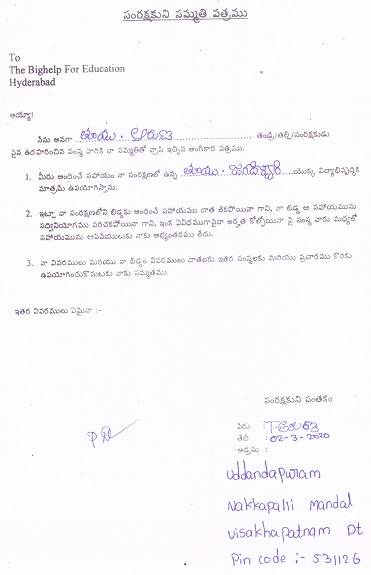 సంరక్షకుని సమ్మతి పత్రము
To
The Bighelp For Education
Hyderabad
అయ్యా!
నేను అనగా ........ తండ్రి/తల్లి/సంరక్షకుడు
పైన ఉదహరించిన సంస్థ వారికి నా సమ్మతితో వ్రాసి ఇచ్చిన అంగీకార పత్రము.
1. మీరు అందించే సహాయం నా సంరక్షణలో ఉన్న ........ యొక్క విద్యాభివృద్ధికి
మాత్రమే ఉపయోగిస్తాను.
2. ఇట్లా నా సంరక్షణలోని బిడ్డకు అందించే సహాయము దాత లేకపోయినా గాని, నా బిడ్డ ఆ సహాయమును
సద్వినియోగము పరచకపోయినా గాని, ఇంక ఏవిధముగానైనా అర్హత కోల్పోయినా పై సంస్థ వారు మధ్యలో
సహాయమును ఆపివేయుటకు నాకు అభ్యంతరము లేదు.
3. నా వివరములు మరియు నా బిడ్డల వివరములు దాతలకు ఇతర సంస్థలకు మరియు ప్రచారము కొరకు
ఉపయోగించుకొనుటకు నాకు సమ్మతము.
ఇతర వివరములు ఏమైనా :-
సంరక్షకుని సంతకం
పేరు :
తేది : 02-3-2020
అడ్రసు :
Uddandapuram
Nakkapalli Mandal
Visakhapatnam Dt
Pin code :- 531126